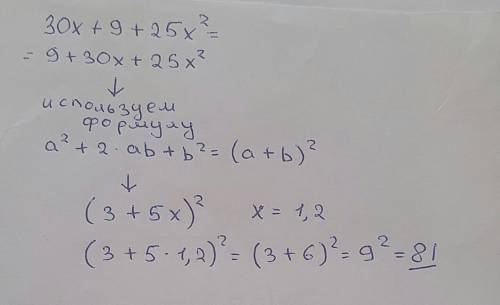 30x + 9 + 25x² =
= 9 + 30x + 25x²
↓
используем
формулу
a² + 2 · ab + b² = (a + b)²
↓
(3 + 5x)² x = 1,2
(3 + 5 · 1,2)² = (3 + 6)² = 9² = 81